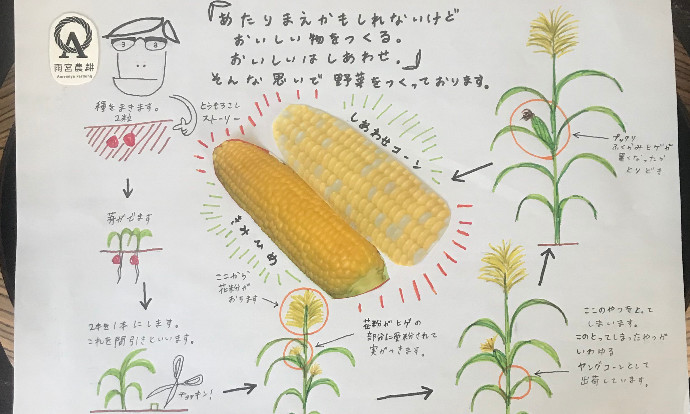 雨宮農耕
Amemiya farming
「あたりまえかもしれないけど
おいしい物をつくる。
おいしいはしあわせ。」
そんな思いで 野菜をつくっております。
とうもろこし
ストーリー
種をまきます。
2粒
芽がでます
2本を1本にします。
これを間引きといいます。
チョッキン!
しあわせコーン
ここから
花粉が
おちます
花粉がヒゲの
部分に受粉されて
実がつきます。
ここのやつをとって
しまいます。
このとってしまったやつが
いわゆる
ヤングコーンとして
出荷しています。
プックリ
ふくらみヒゲが
黒くなったら
とりどき